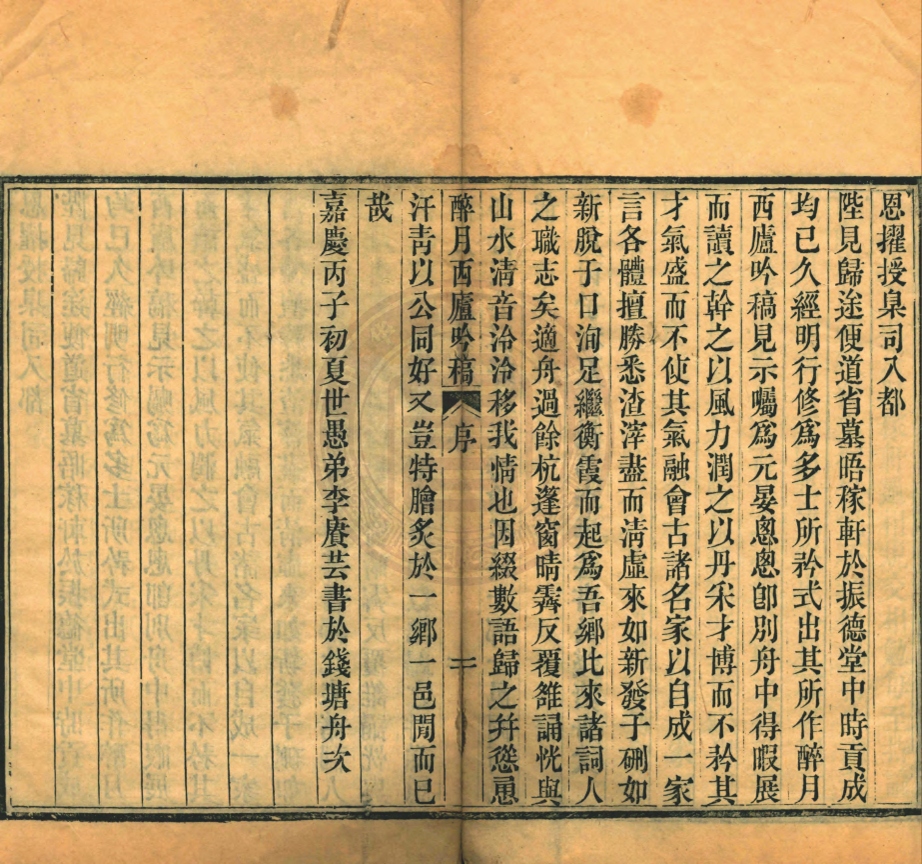 恩擢授臬司入都
陛見歸途便道省墓晤稼軒於振德堂中時貢成
均已久經明行修爲多士所矜式出其所作醉月
西廬吟稿見示囑爲元晏悤悤卽別舟中得暇展
而讀之幹之以風力潤之以丹采才博而不矜其
才氣盛而不使其氣融會古諸名家以自成一家
言各體擅勝悉渣滓盡而淸虛來如新發于硎如
新脫于口洵足繼衡霞而起爲吾鄉比來諸詞人
之職志矣適舟過餘杭蓬窗晴霽反覆雒誦恍與
山水淸音泠泠移我情也因綴數語歸之幷慫恿
醉月西廬吟稿 序 二
汗靑以公同好又豈特膾炙於一鄉一邑閒而已
哉
嘉慶丙子初夏世愚弟李賡芸書於錢塘舟次